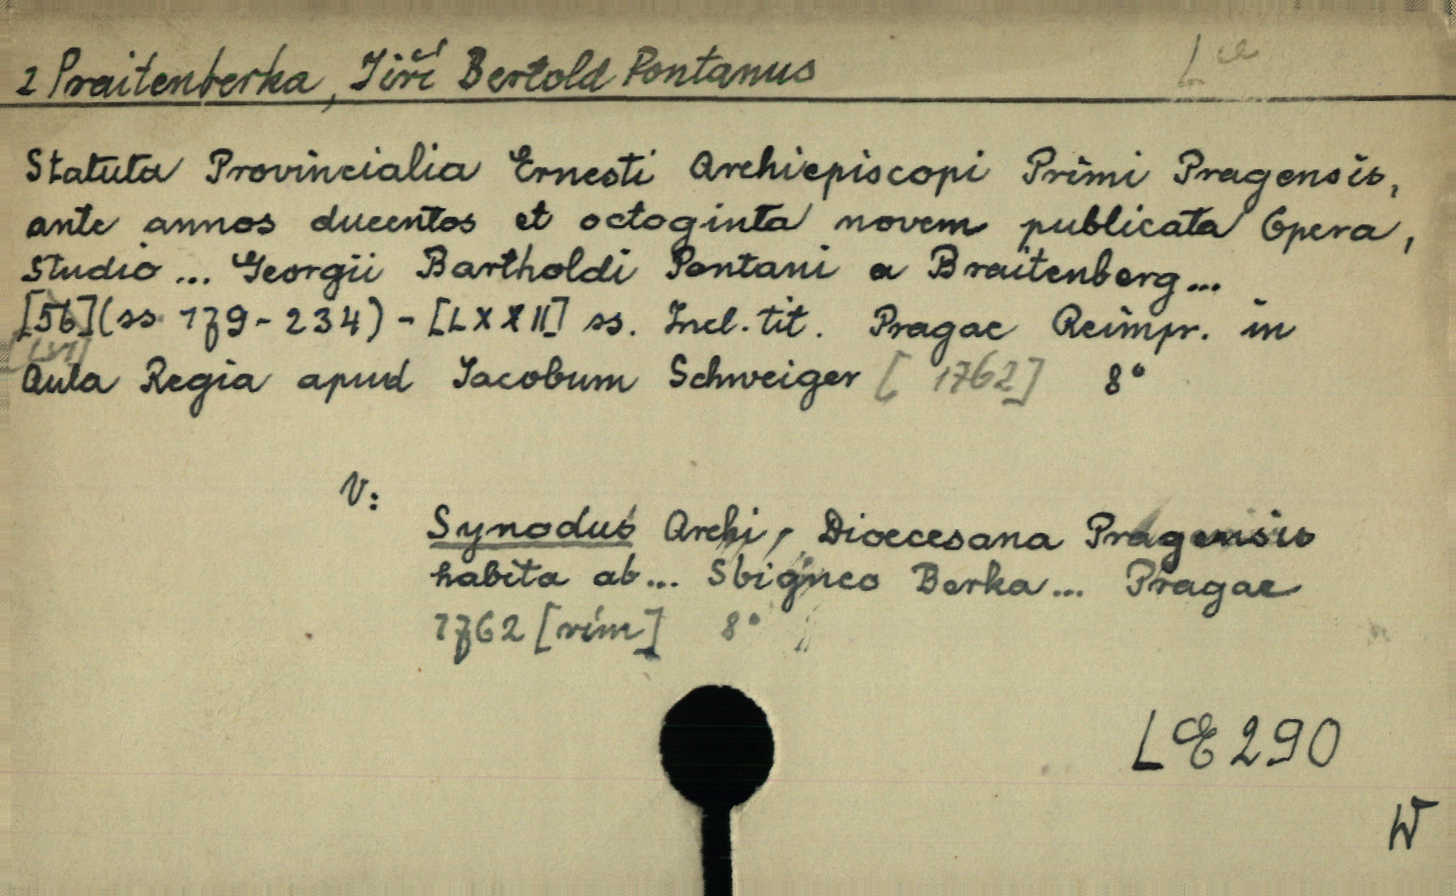 z Praitenberka, Jiří Bertold Pontanus
L e
Statuta Provincialia Ernesti Archiepiscopi Primi Pragensis,
ante annos ducentos et octoginta novem publicata Opera,
Studio ... Georgii Bartholdi Pontani a Braitenberg...
[56] (ss 179-234) - [LXXII] ss. Incl. tit. Pragae Reimpr. in
[LVI]
Aula Regia apud Jacobum Schweiger [ 1762] 8°
V:
Synodus Archi, Dioecesana Pragensis
habita ab... Sbigneo Berka... Pragae
1762 [rim] 8°
LE 290
W